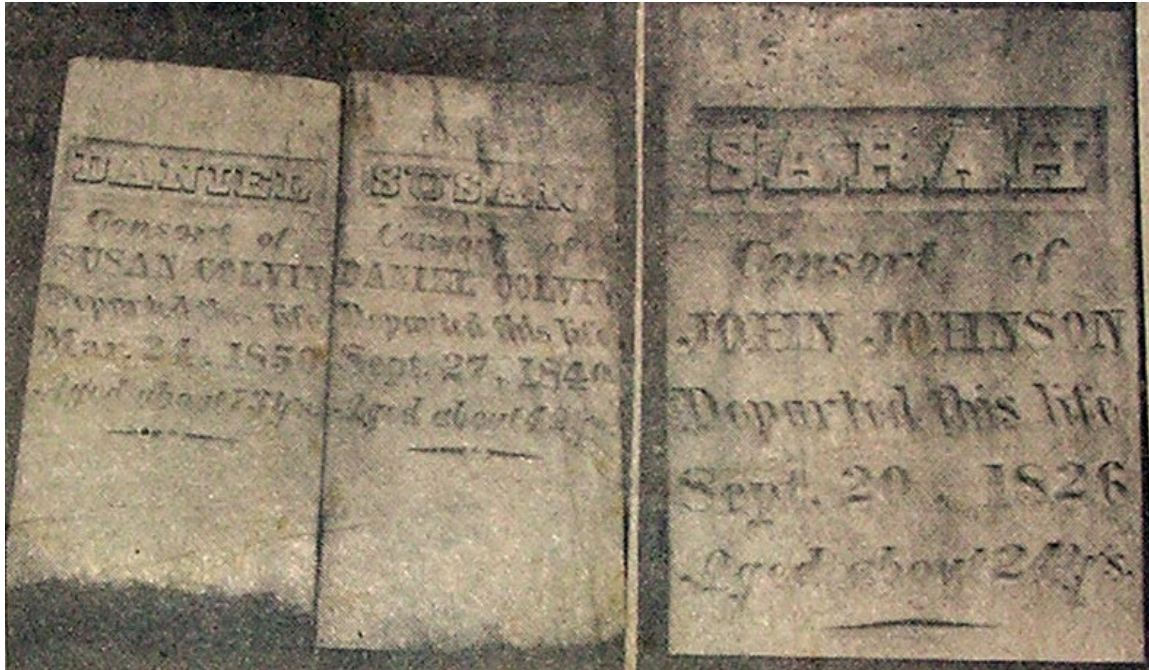 DANIEL
Consort of
SUSAN COLVIN
Departed this life
Mar. 24, 1850
Aged about
SUSAN
Consort of
DANIEL COLVIN
Departed this life
Sept. 27,
Aged about
SARAH
Consort of
JOHN JOHNSON
Departed this life
Sept. 20, 1826
Aged about